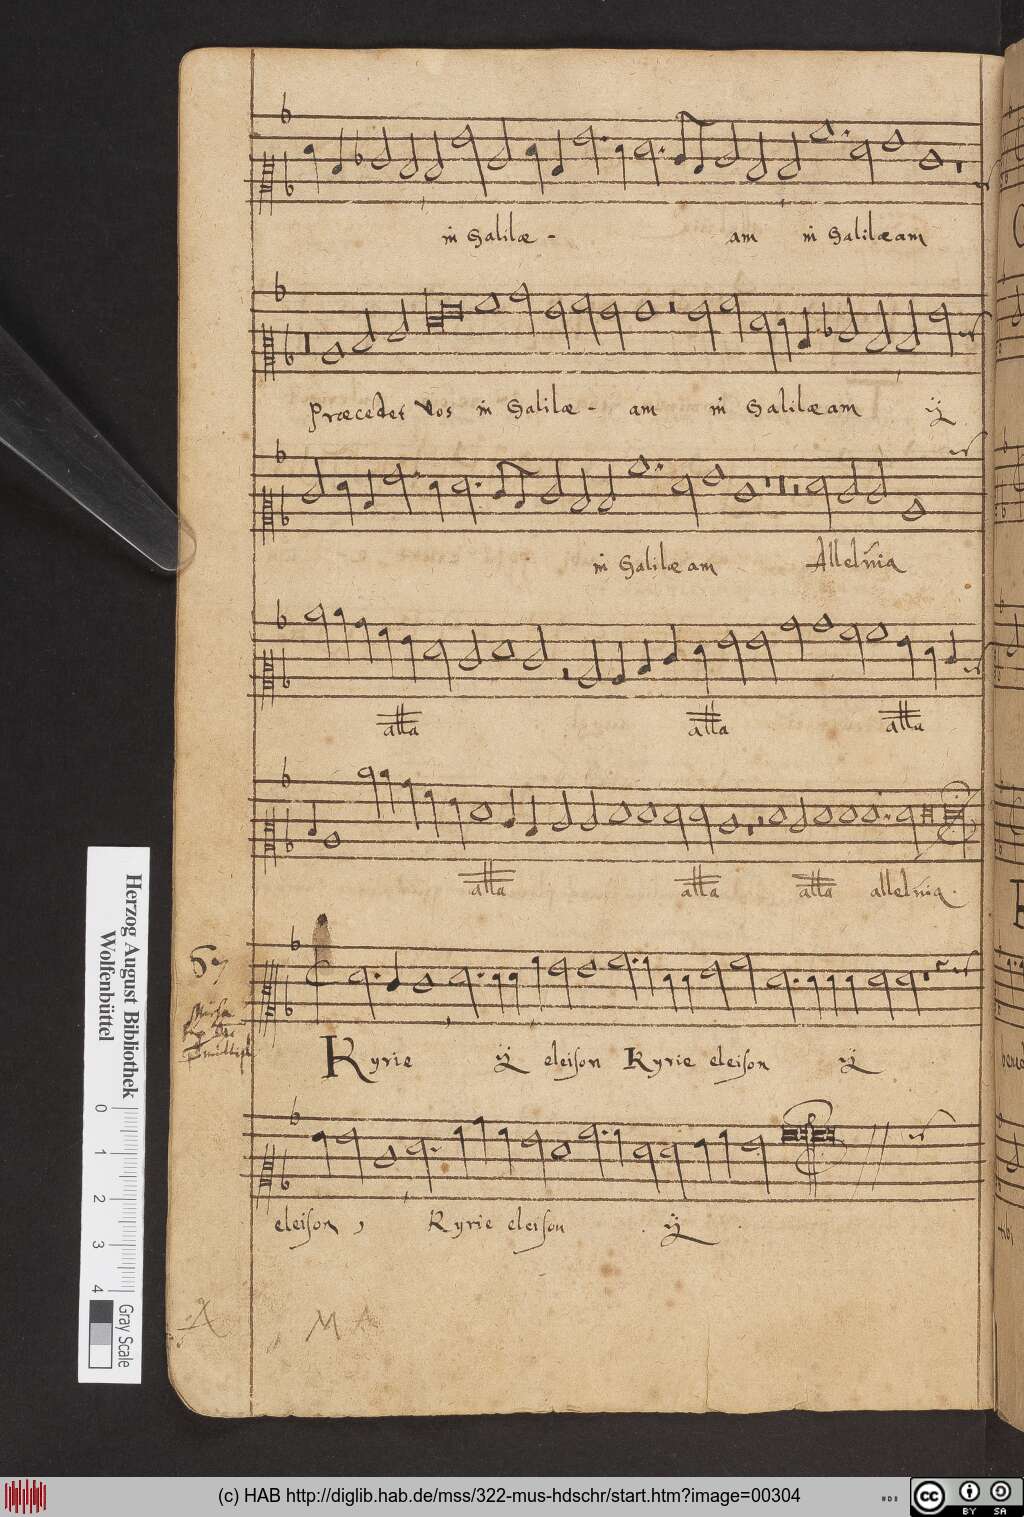 in Galilæ - am in Galilæam
Præcedet vos in Galilæ - am in Galilæam ij
in Galilæam Alleluia
alla alla alla
alla alla alla alleluia.
67
Missa
Kyrie ij eleison Kyrie eleison ij
eleison, Kyrie eleison ij
M A
Herzog August Bibliothek
Wolfenbüttel
0 1 2 3 4 Gray Scale
(c) HAB http://diglib.hab.de/mss/322-mus-hdschr/start.htm?image=00304
cc BY SA